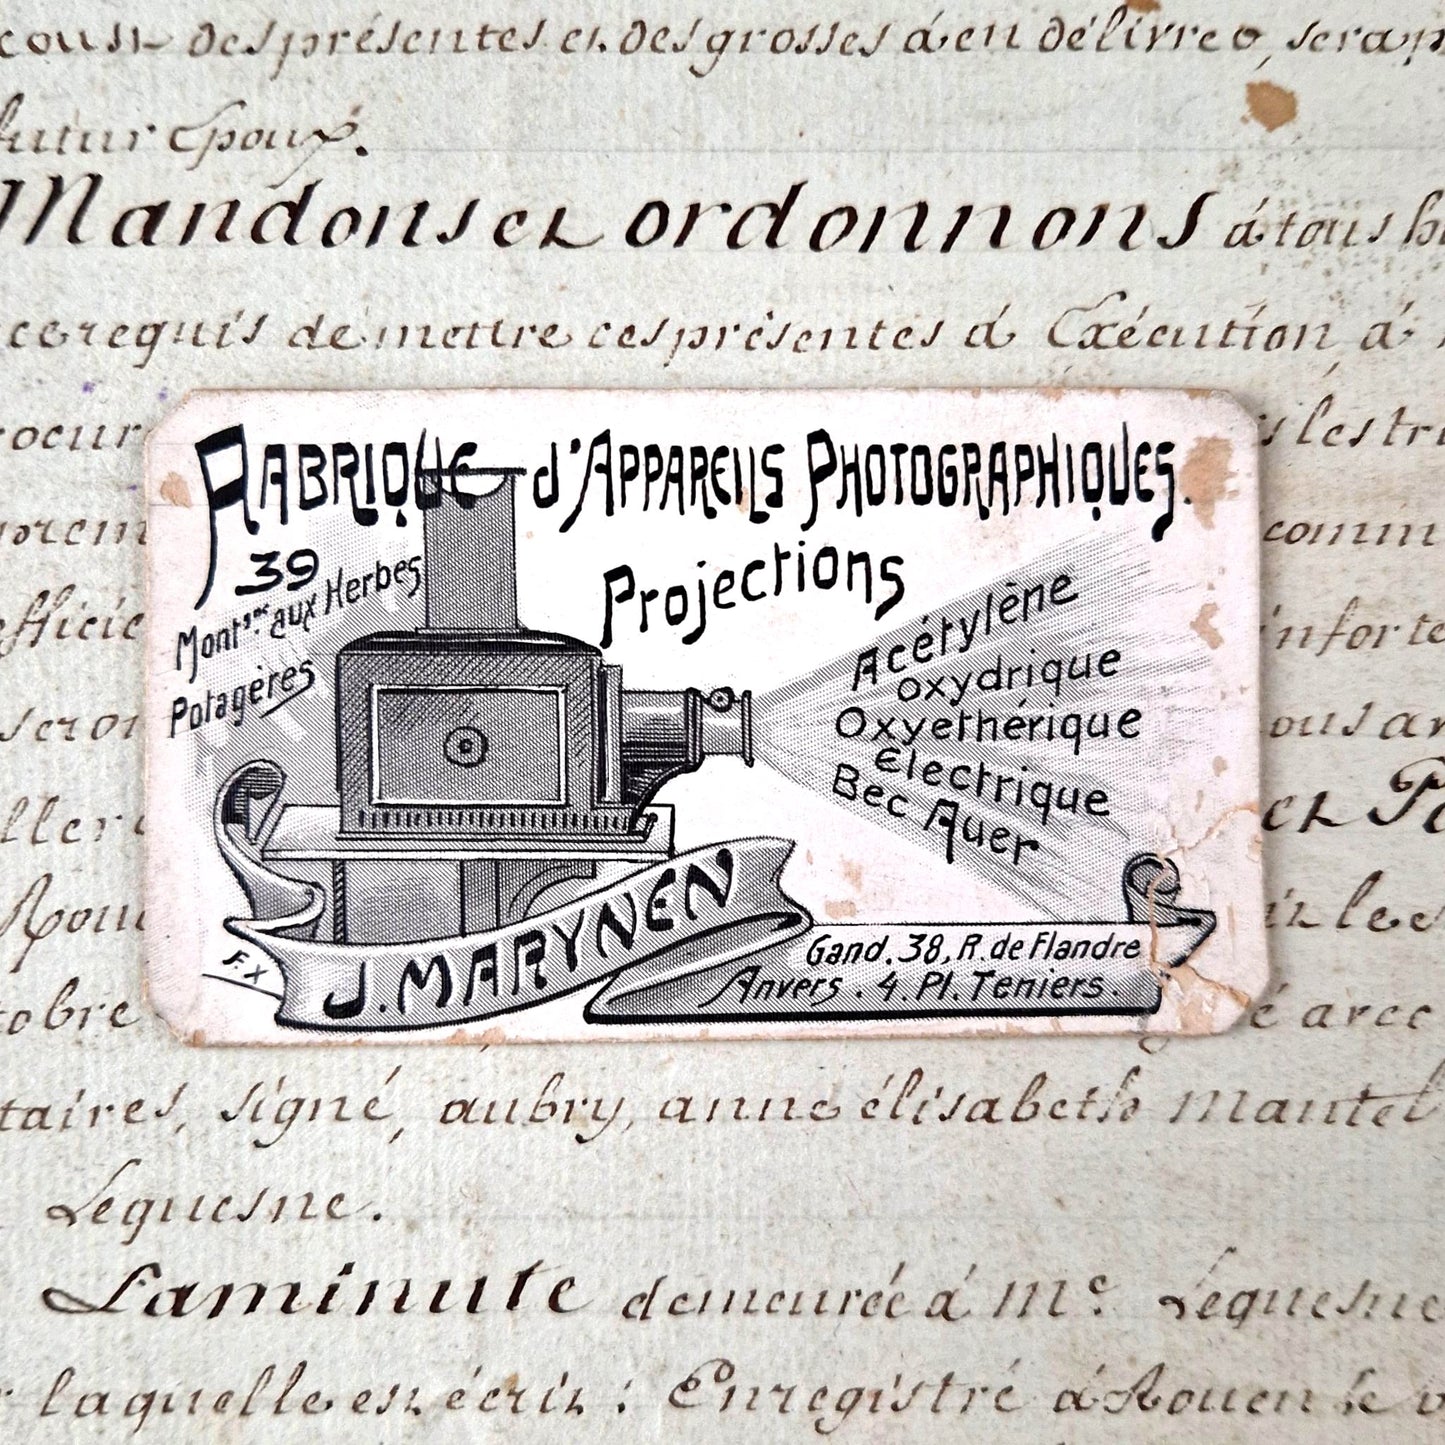 des présentes et des grosses à en délivrer, seront
futur Epoux.
Mandons et ordonnons à tous
ce requis de mettre ces présentes à Exécution, à
FABRIQUE d'APPAREILS PHOTOGRAPHIQUES.
39
Mont.gne aux Herbes
Potagères
Projections
Acétylène
oxydrique
Oxyethérique
Electrique
Bec Auer
J. MARYNEN
F.X
Gand. 38, R. de Flandre
Anvers. 4. Pl. Teniers.
les
comm
seron
et
tobre
é avec
taires, signé, aubry, anne élisabeth Mantel
Lequesne.
La minute demeurée à Me. Lequesne
laquelle est écrit : Enregistré à Rouen le